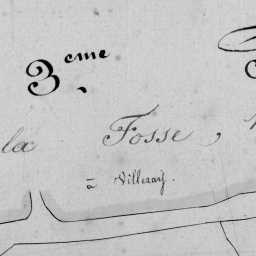 3.eme
la Fosse,
à Villeray.